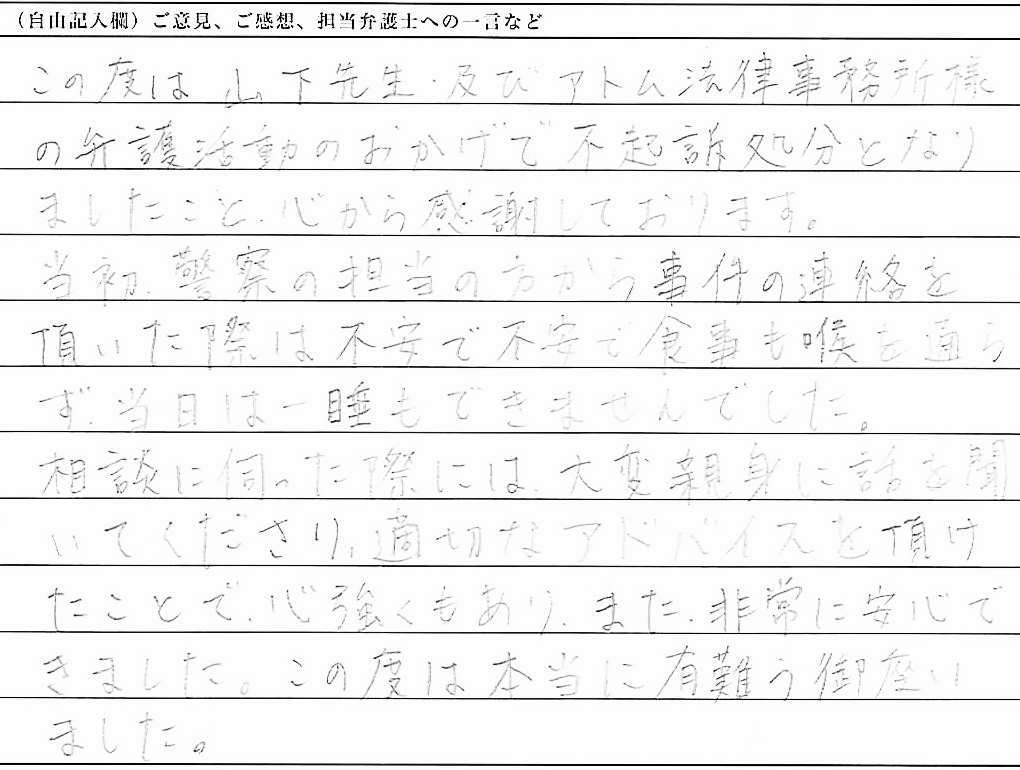 （自由記入欄）ご意見、ご感想、担当弁護士への一言など
この度は山下先生・及びアトム法律事務所様
の弁護活動のおかげで不起訴処分となり
ましたこと、心から感謝しております。
当初、警察の担当の方から事件の連絡を
頂いた際は不安で不安で食事も喉を通ら
ず、当日は一睡もできませんでした。
相談に伺った際には、大変親身に話を聞
いてくださり、適切なアドバイスを頂け
たことで、心強くもあり、また、非常に安心で
きました。この度は本当に有難う御座い
ました。